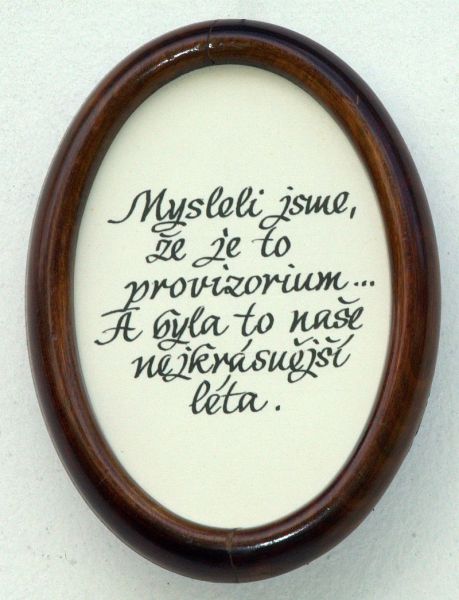 Mysleli jsme,
že je to
provizorium...
A byla to naše
nejkrásnější
léta.